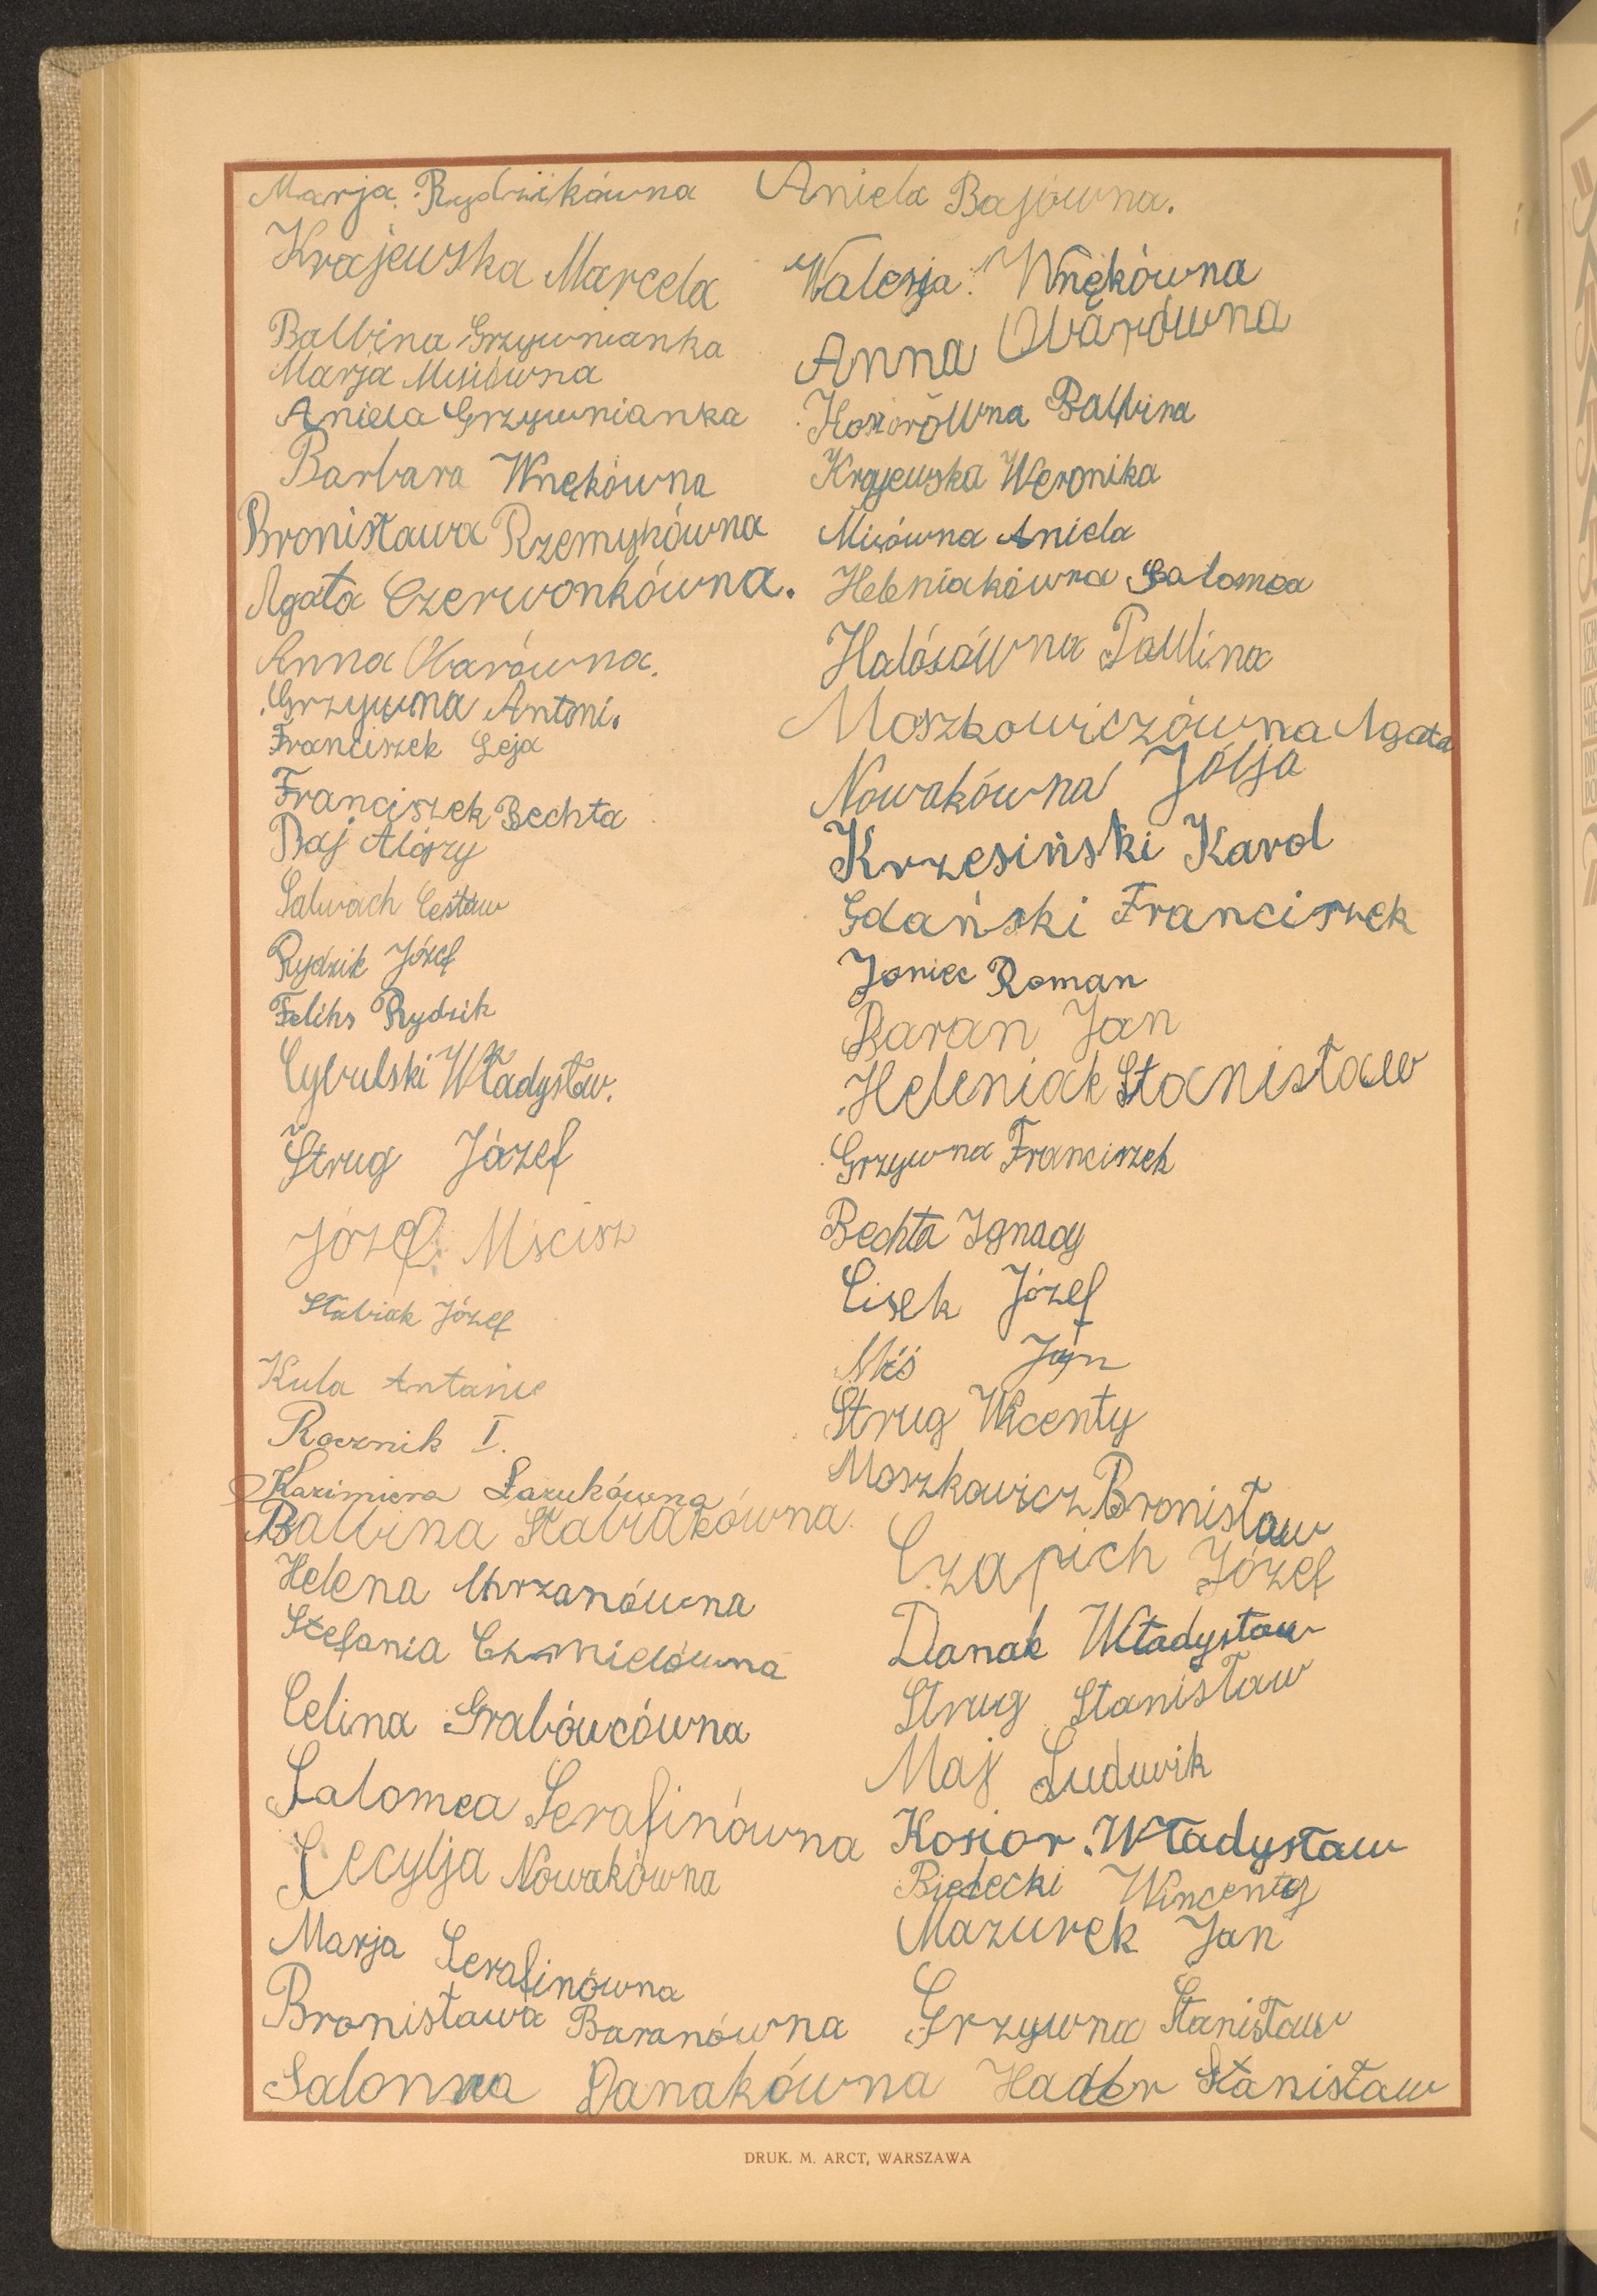 Marja Rydzikówna
Krajewska Marcela
Balbina Grzywnianka
Marja Misiówna
Aniela Grzywnianka
Barbara Wnękówna
Bronisława Rzemykówna
Agata Czerwonkówna.
Anna Olbarówna.
Grzywna Antoni.
Franciszek Leja
Franciszek Bechta
Baj Alojzy
Salwach Cesław
Rydzik Józef
Feliks Rydzik
Cybulski Władysław.
Strug Józef
Józef Mścisz
Słabiak Józef
Kula Antonie
Rocznik I.
Kazimiera Łazukówna
Balbina Słabiakówna.
Helena Chrzanówna
Stefania Chmielówna
Celina Grabówcówna
Salomea Serafinówna
Cecylja Nowakówna
Marja Serafinówna
Bronisława Baranówna
Salomea Danakówna
Aniela Bajówna.
Walerja Wnękówna
Anna Olbarówna
Kosiorówna Balbina
Krajewska Weronika
Misówna Aniela
Heleniakówna Salomea
Halósówna Paulina
Moszkowiczówna Agata
Nowakówna Jólja
Krzesiński Karol
Gdański Franciszek
Joniec Roman
Baran Jan
Heleniak Stanisław
Grzywna Franciszek
Bechta Ignacy
Lisek Józef
Miś Jan
Strug Wicenty
Moszkowicz Bronisław
Czapich Józef
Danak Władysław
Strug Stanisław
Maj Ludwik
Kosior Władysław
Bielecki Wincenty
Mazurek Jan
Grzywna Stanisław
Hader Stanisław
DRUK. M. ARCT, WARSZAWA